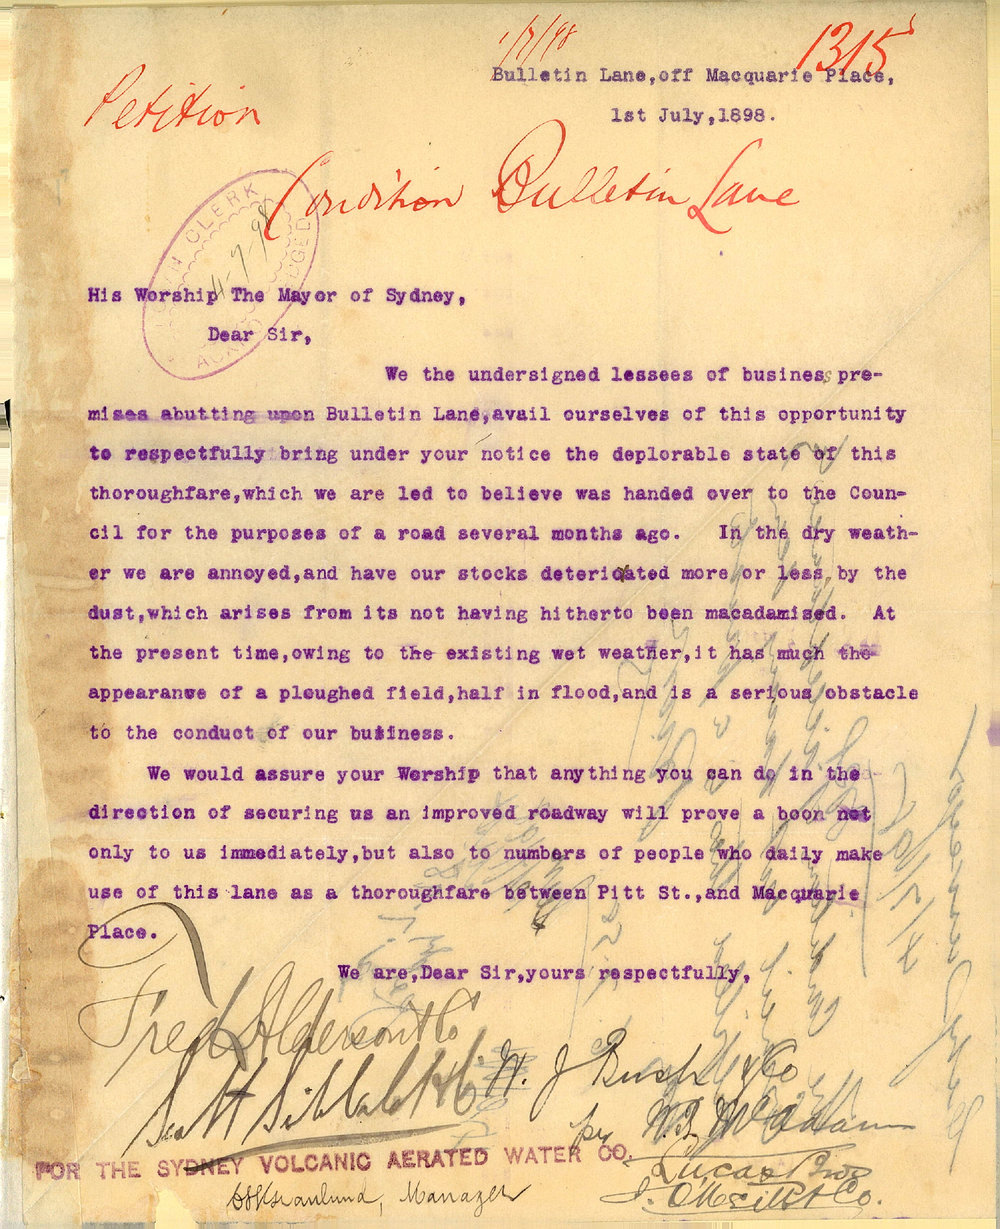 1/7/98
1315
Bulletin Lane,off Macquarie Place,
Petition
1st July,1898.
Condition Bulletin Lane
TOWN CLERK
4-7-98
His Worship The Mayor of Sydney,
Dear Sir,
We the undersigned lessees of business pre-
mises abutting upon Bulletin Lane,avail ourselves of this opportunity
to respectfully bring under your notice the deplorable state of this
thoroughfare,which we are led to believe was handed over to the Coun-
cil for the purposes of a road several months ago. In the dry weath-
er we are annoyed,and have our stocks deterioated more or less by the
dust,which arises from its not having hitherto been macadamised. At
the present time,owing to the existing wet weather,it has much the
appearanwe of a ploughed field,half in flood,and is a serious obstacle
to the conduct of our buisiness.
We would assure your Worship that anything you can do in the
direction of securing us an improved roadway will prove a boon not
only to us immediately,but also to numbers of people who daily make
use of this lane as a thoroughfare between Pitt St.,and Macquarie
Place.
We are,Dear Sir,yours respectfully,
Fred Alderson & Co
Scott Sibbald & Co
W. J Bush & Co
per W. McAdam
FOR THE SYDNEY VOLCANIC AERATED WATER CO.
Manager
Lucas Bros
J. O'Neill & Co.